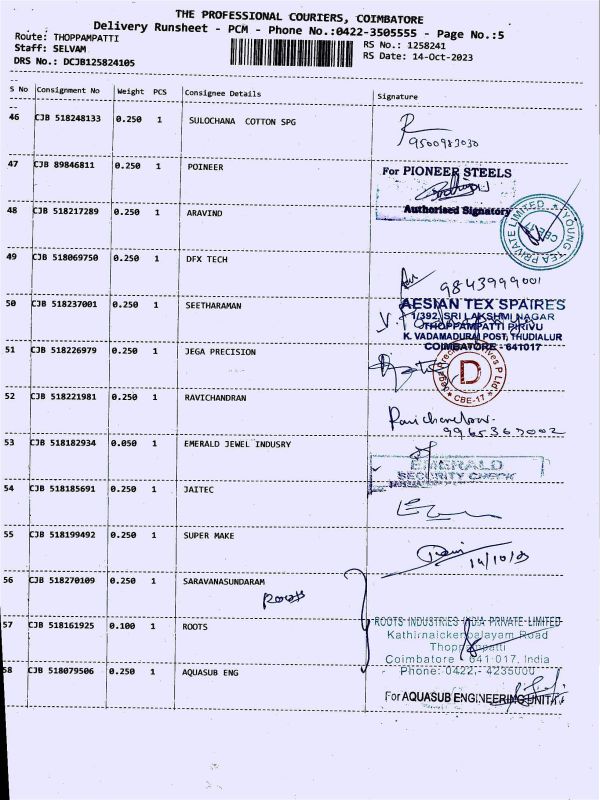 THE PROFESSIONAL COURIERS, COIMBATORE
Delivery Runsheet - PCM - Phone No.:0422-3505555 - Page No.:5
Route: THOPPAMPATTI
RS No.: 1258241
Staff: SELVAM
RS Date: 14-Oct-2023
DRS No.: DCJB125824105
S No Consignment No Weight PCS Consignee Details Signature
46 CJB 518248133 0.250 1 SULOCHANA COTTON SPG
9500983030
47 CJB 89846811 0.250 1 POINEER
For PIONEER STEELS
Authorised Signatory
48 CJB 518217289 0.250 1 ARAVIND
YOUNG TEA PRIVATE LIMITED
49 CJB 518069750 0.250 1 DFX TECH
9843999001
50 CJB 518237001 0.250 1 SEETHARAMAN
AESIAN TEX SPAIRES
1/392, SRI LAKSHMI NAGAR
THOPPAMPATTI PIRIVU
K. VADAMADURAI POST, THUDIALUR
COIMBATORE - 641017
51 CJB 518226979 0.250 1 JEGA PRECISION
D
P Ltd
CBE-17
52 CJB 518221981 0.250 1 RAVICHANDRAN
Ravichandran
53 CJB 518182934 0.050 1 EMERALD JEWEL INDUSRY
EMERALD
SECURITY CHECK
54 CJB 518185691 0.250 1 JAITEC
55 CJB 518199492 0.250 1 SUPER MAKE
14/10/23
56 CJB 518270109 0.250 1 SARAVANASUNDARAM
Roots
57 CJB 518161925 0.100 1 ROOTS
ROOTS INDUSTRIES INDIA PRIVATE LIMITED
Kathirnaickenpalayam Road
Thoppampatti
Coimbatore 641 017, India
Phone: 0422 - 4235000
58 CJB 518079506 0.250 1 AQUASUB ENG
For AQUASUB ENGINEERING UNIT